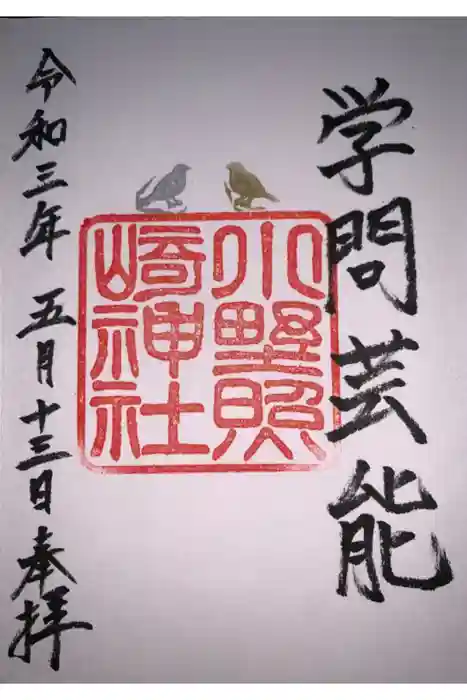 学問芸能
小野照
崎神社
令和三年五月十三日奉拝